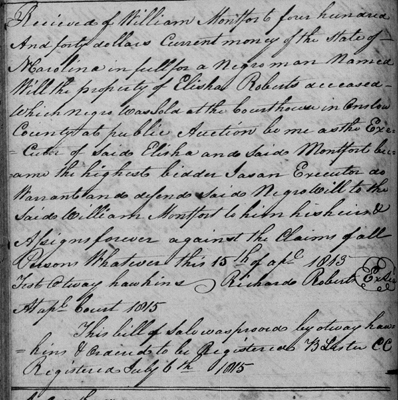 Recieved of William Montfort four hundred
And forty dollars Current money of the State of
N Carolina in full for a Negro man Named
Will the property of Elisha Roberts deceased
Which Negro was Sold at the Courthouse in Onslow
County at public Auction by me as the Exe-
-cutor of Said Elisha and Said Montfort bec-
ame the highest bidder I as an Executor do
Warrant and defend Said Negro Will to the
Said William Montfort to him his heirs &
Assigns forever against the Claims of all
Persons Whatever this 15th of apl 1813
Test Otway hawkins Richard Roberts Exr
At apl Court 1815
This bill of Sale was proved by otway haw-
kins & Ordered to be Registered B Lester CC
Registered July 6th 1815